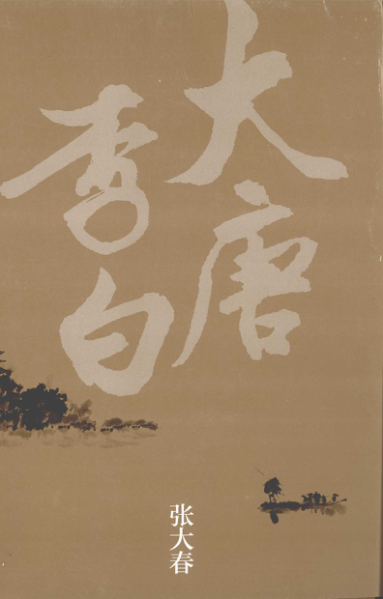 大唐
李白
张大春